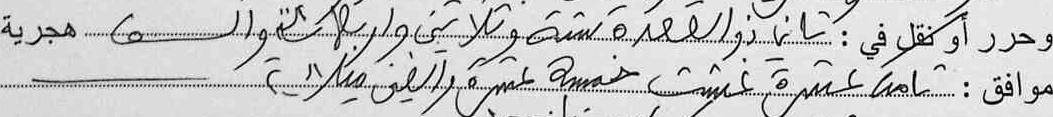 وحرر أو نقل في : ثاني ذو القعدة ستة وثلاثين وأربعمائة وألف هجرية
موافق : ثامنة عشرة غشت خمسة عشرة وألفين ميلادية